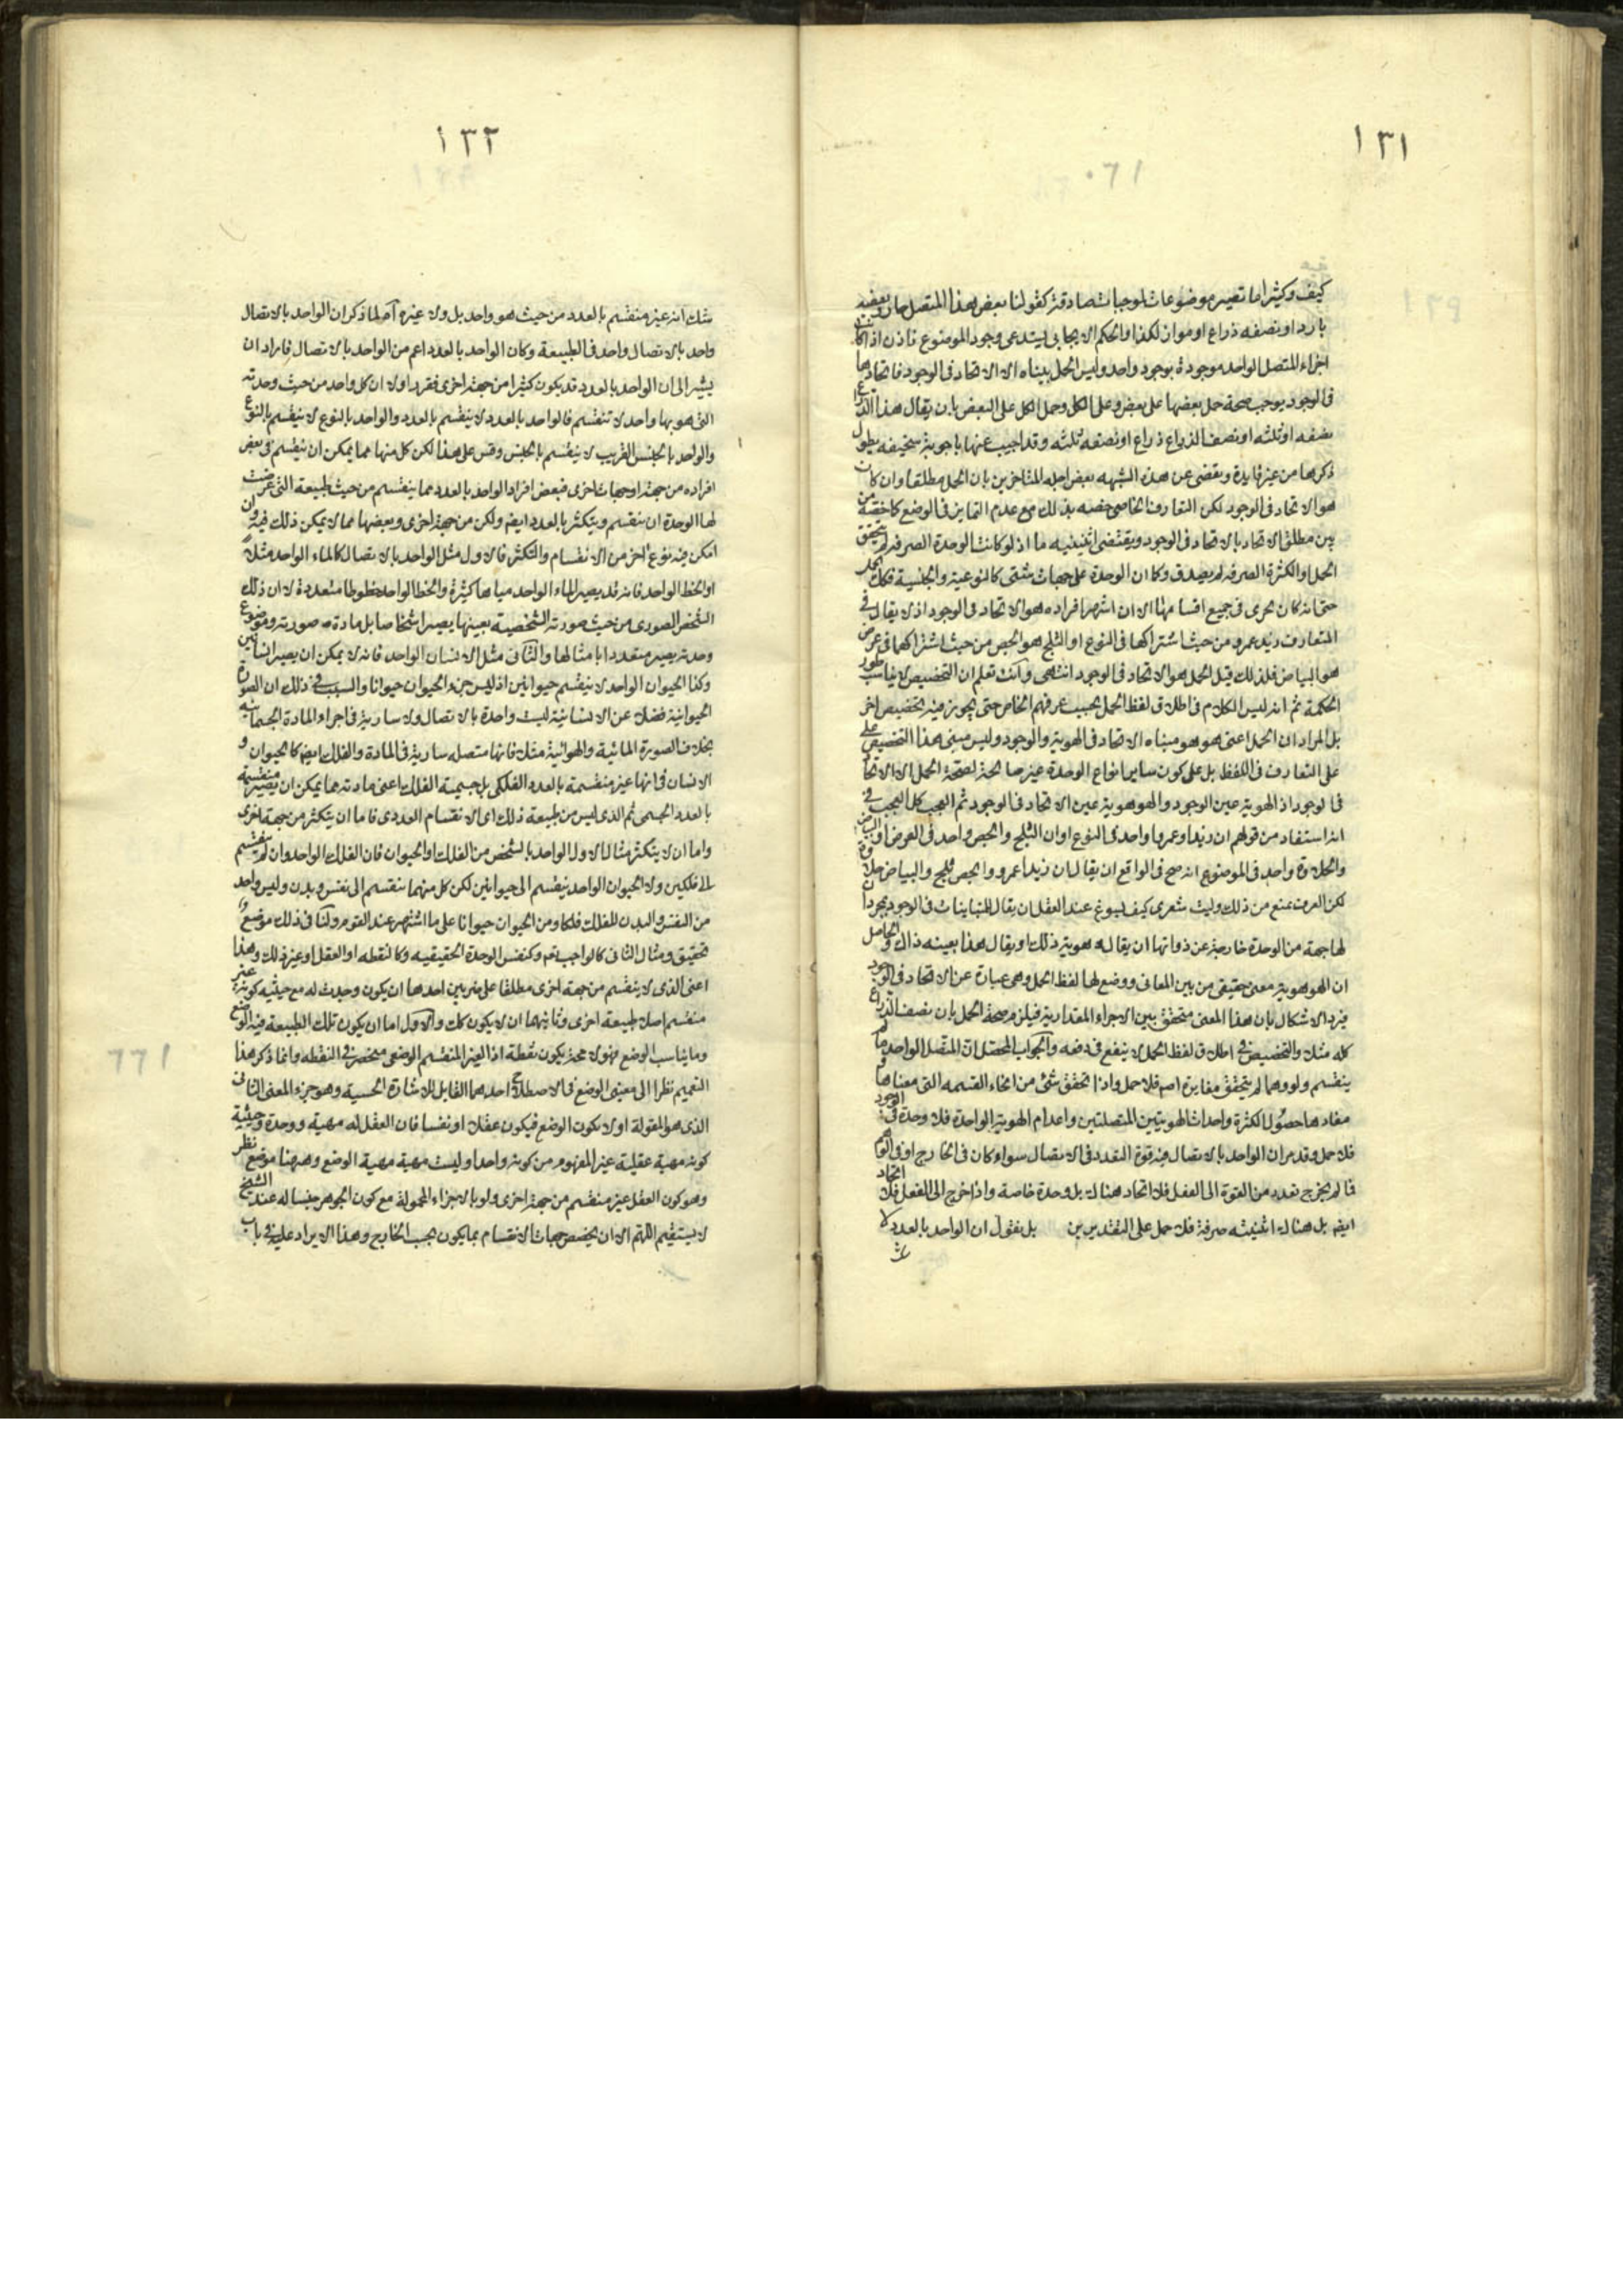 ١٣١
كيف وكثيرا ما تصير موضوعات لموجبات صادقة كقولنا بعض هذا المتصل حار وبعضه
بارد او نصفه ذراع او مواز لكذا والحكم الايجابى يستدعى وجود الموضوع فاذن اذا كانت
اجزاء المتصل الواحد موجودة بوجود واحد وليس الحمل بيناه الا الاتحاد فى الوجود فاتحادها
فى الوجود يوجب صحة حمل بعضها على بعض وعلى الكل وحمل الكل على البعض بان يقال هذا الذراع
نصفه او ثلثه او نصف الذراع ذراع او نصفه ثلثه وقد اجيب عنها باجوبة سخيفه يطول
ذكرها من غير فايدة وتفصى عن هذه الشبهه بعض اجله المتاخرين بان الحمل مطلقا وان كان
هو الاتحاد فى الوجود لكن التعارف الخاصى خصه بذلك مع عدم التمايز فى الوضع كما خصه من
بين مطلق الاتحاد بالاتحاد فى الوجود ويقتضى اثنينيه ما اذ لو كانت الوحدة الصرفه لم يتحقق
الحمل والكثرة الصرفه لم يصدق وكما ان الوحدة على جهات شتى كالنوعية والجنسية فكك الحمل
حتى انه كان يجرى فى جميع اقسامها الا ان اشهر افراده هو الاتحاد فى الوجود اذ لا يقال فى
المتعارف زيد عمرو من حيث اشتراكهما فى النوع او الثلج هو الجص من حيث اشتراكهما فى عرض
هو البياض فلذلك قيل الحمل هو الاتحاد فى الوجود انتهى وانت تعلم ان التخصيص لا يناسب طور
الحكمة ثم انه ليس الكلام فى اطلاق لفظ الحمل بحسب عرفهم الخاص حتى يجوز فيه تخصيص اخر
بل المراد ان الحمل اعنى هو هو مبناه الاتحاد فى الهوية والوجود وليس مبنى هذا التخصيص على
على التعارف فى اللفظ بل على كون ساير انواع الوحدة غير صالحة لصحة الحمل الا الاتحاد
فى الوجود اذ الهوية عين الوجود والهوهوية عين الاتحاد فى الوجود ثم العجب كل العجب فى
انه استفاد من قولهم ان زيدا وعمروا واحد فى النوع او ان الثلج والجص واحد فى العرض او البياض
والحلاوة واحد فى الموضوع انه صح فى الواقع ان يقال ان زيدا عمرو والجص ثلج والبياض حلاوة
لكن العرف يمنع من ذلك وليت شعرى كيف يسوغ عند العقل ان يقال للمتباينات فى الوجود بمجرد ان
لها جهة من الوحدة خارجة عن ذواتها ان يقال هوية ذلك او يقال هذا بعينه ذاك والحاصل
ان الهوهوية معنى حقيقى من بين المعانى ووضع لها لفظ الحمل وهى عبارة عن الاتحاد فى الوجود
فيرد الاشكال بان هذا المعنى متحقق بين الاجزاء المقدارية فيلزم صحة الحمل بان نصف الذراع
كله مثلا والتخصيص فى اطلاق لفظ الحمل لا ينفع فى دفعه والجواب المحصل ان المتصل الواحد ما لم
ينقسم ولو وهما لم يتحقق مغايرة اصم فلا حمل واذا تحقق شئ من انحاء القسمه التى معناها و
مفادها حصول الكثرة واحداث الهويتين المتصلتين واعدام الهوية الواحدة فلا وحدة فى الوجود
فلا حمل وقد مر ان الواحد بالاتصال فيه قوة التعدد فى الاتصال سواء كان فى الخارج او فى الوهم
فما لم يخرج تعدد من القوة الى الفعل فلا اتحاد هناك بل وحدة خاصة واذا خرج الى الفعل فلا اتحاد
ايضم بل هناك اثنينيه صرفة فلا حمل على التقديرين بل نقول ان الواحد بالعدد لا
١٣٢
شك انه غير منقسم بالعدد من حيث هو واحد بل ولا غيره اه لما ذكر ان الواحد بالاتصال
واحد بالاتصال واحد فى الطبيعة وكان الواحد بالعدد اعم من الواحد بالاتصال فاراد ان
يشير الى ان الواحد بالعدد قد يكون كثيرا من جهة اخرى فقرر اولا ان كل واحد من حيث وحدته
التى هو بها واحد لا تنقسم فالواحد بالعدد لا ينقسم بالعدد والواحد بالنوع لا ينقسم بالنوع
والواحد بالجنس القريب لا ينقسم بالجنس وقس على هذا لكن كل منها مما يمكن ان ينقسم فى بعض
افراده من جهة او جهات اخرى فبعض افراد الواحد بالعدد مما ينقسم من حيث طبيعة التى عرضت
لها الوحدة ان ينقسم ويتكثر بالعدد ايضم ولكن من جهة اخرى وبعضها مما لا يمكن ذلك فيه وان
امكن فيه نوع اخر من الانقسام والتكثر فالاول مثل الواحد بالاتصال كالماء الواحد مثلا
او الخط الواحد فانه قد يصير الماء الواحد مياها كثيرة والخط الواحد خطوطا متعددة لا ان ذلك
الشخص الصورى من حيث صورته الشخصية بعينها يصير اشخاصا بل مادة صورته وموضوع
وحدته يصير متعددا بامثالها والثانى مثل الانسان الواحد فانه لا يمكن ان يصير انسانين
وكذا الحيوان الواحد لا ينقسم حيوانين اذ ليس جزء الحيوان حيوانا والسبب فى ذلك ان الصورة
الحيوانية فضلا عن الانسانية ليست واحدة بالاتصال ولا سارية فى اجزاء المادة الجسمانية
بخلاف الصورة المائية والهوائية مثلا فانها متصله سارية فى المادة والفلك ايضم كالحيوان و
الانسان فى انها غير منقسمة بالعدد الفلكى بل جسمية الفلك اعنى مادته مما يمكن ان يصير منقسمة
بالعدد الجسمى ثم الذى ليس من طبيعة ذلك اى الانقسام العددى فاما ان يتكثر من جهة اخرى
واما ان لا يتكثر مثال الاول الواحد بالشخص من الفلك او الحيوان فان الفلك الواحد وان لم ينقسم
الى فلكين ولا الحيوان الواحد ينقسم الى حيوانين لكن كل منهما ينقسم الى نفس وبدن وليس واحد
من النفس والبدن للفلك فلكا ومن الحيوان حيوانا على ما اشتهر عند القوم ولنا فى ذلك موضع
تحقيق ومثال الثانى كالواجب تعم وكنفس الوحدة الحقيقيه وكالنقطه او العقل او غير ذلك وهذا
اعنى الذى لا ينقسم من جهة اخرى مطلقا على ضربين احدهما ان يكون وجدت له مع حيثيه كونه غير
منقسم اصلا طبيعة اخرى وثانيهما ان لا يكون كك والاول اما ان يكون تلك الطبيعة فيه الوضع
وما يناسب الوضع فهو لا محة يكون نقطة اذ الغير المنقسم الوضعى منحصر فى النقطه وانما ذكر هذا
التعميم نظرا الى معنيى الوضع فى الاصطلاح احدهما القابل للاشارة الحسية وهو جزء المعنى الثانى
الذى هو المقولة او لا يكون الوضع فيكون عقلا او نفسا فان العقل له مهية ووحدة وحيثية
كونه مهية عقلية غير المفهوم من كونه واحدا وليست مهية مهية الوضع وههنا موضع نظر
وهو كون العقل غير منقسم من جهة اخرى ولو بالاجزاء المحمولة مع كون الجوهر جنسا له عند الشيخ
لا يستقيم اللهم الا ان يخصص جهات الانقسام بما يكون بحسب الخارج وهذا الايراد عليه فى باب